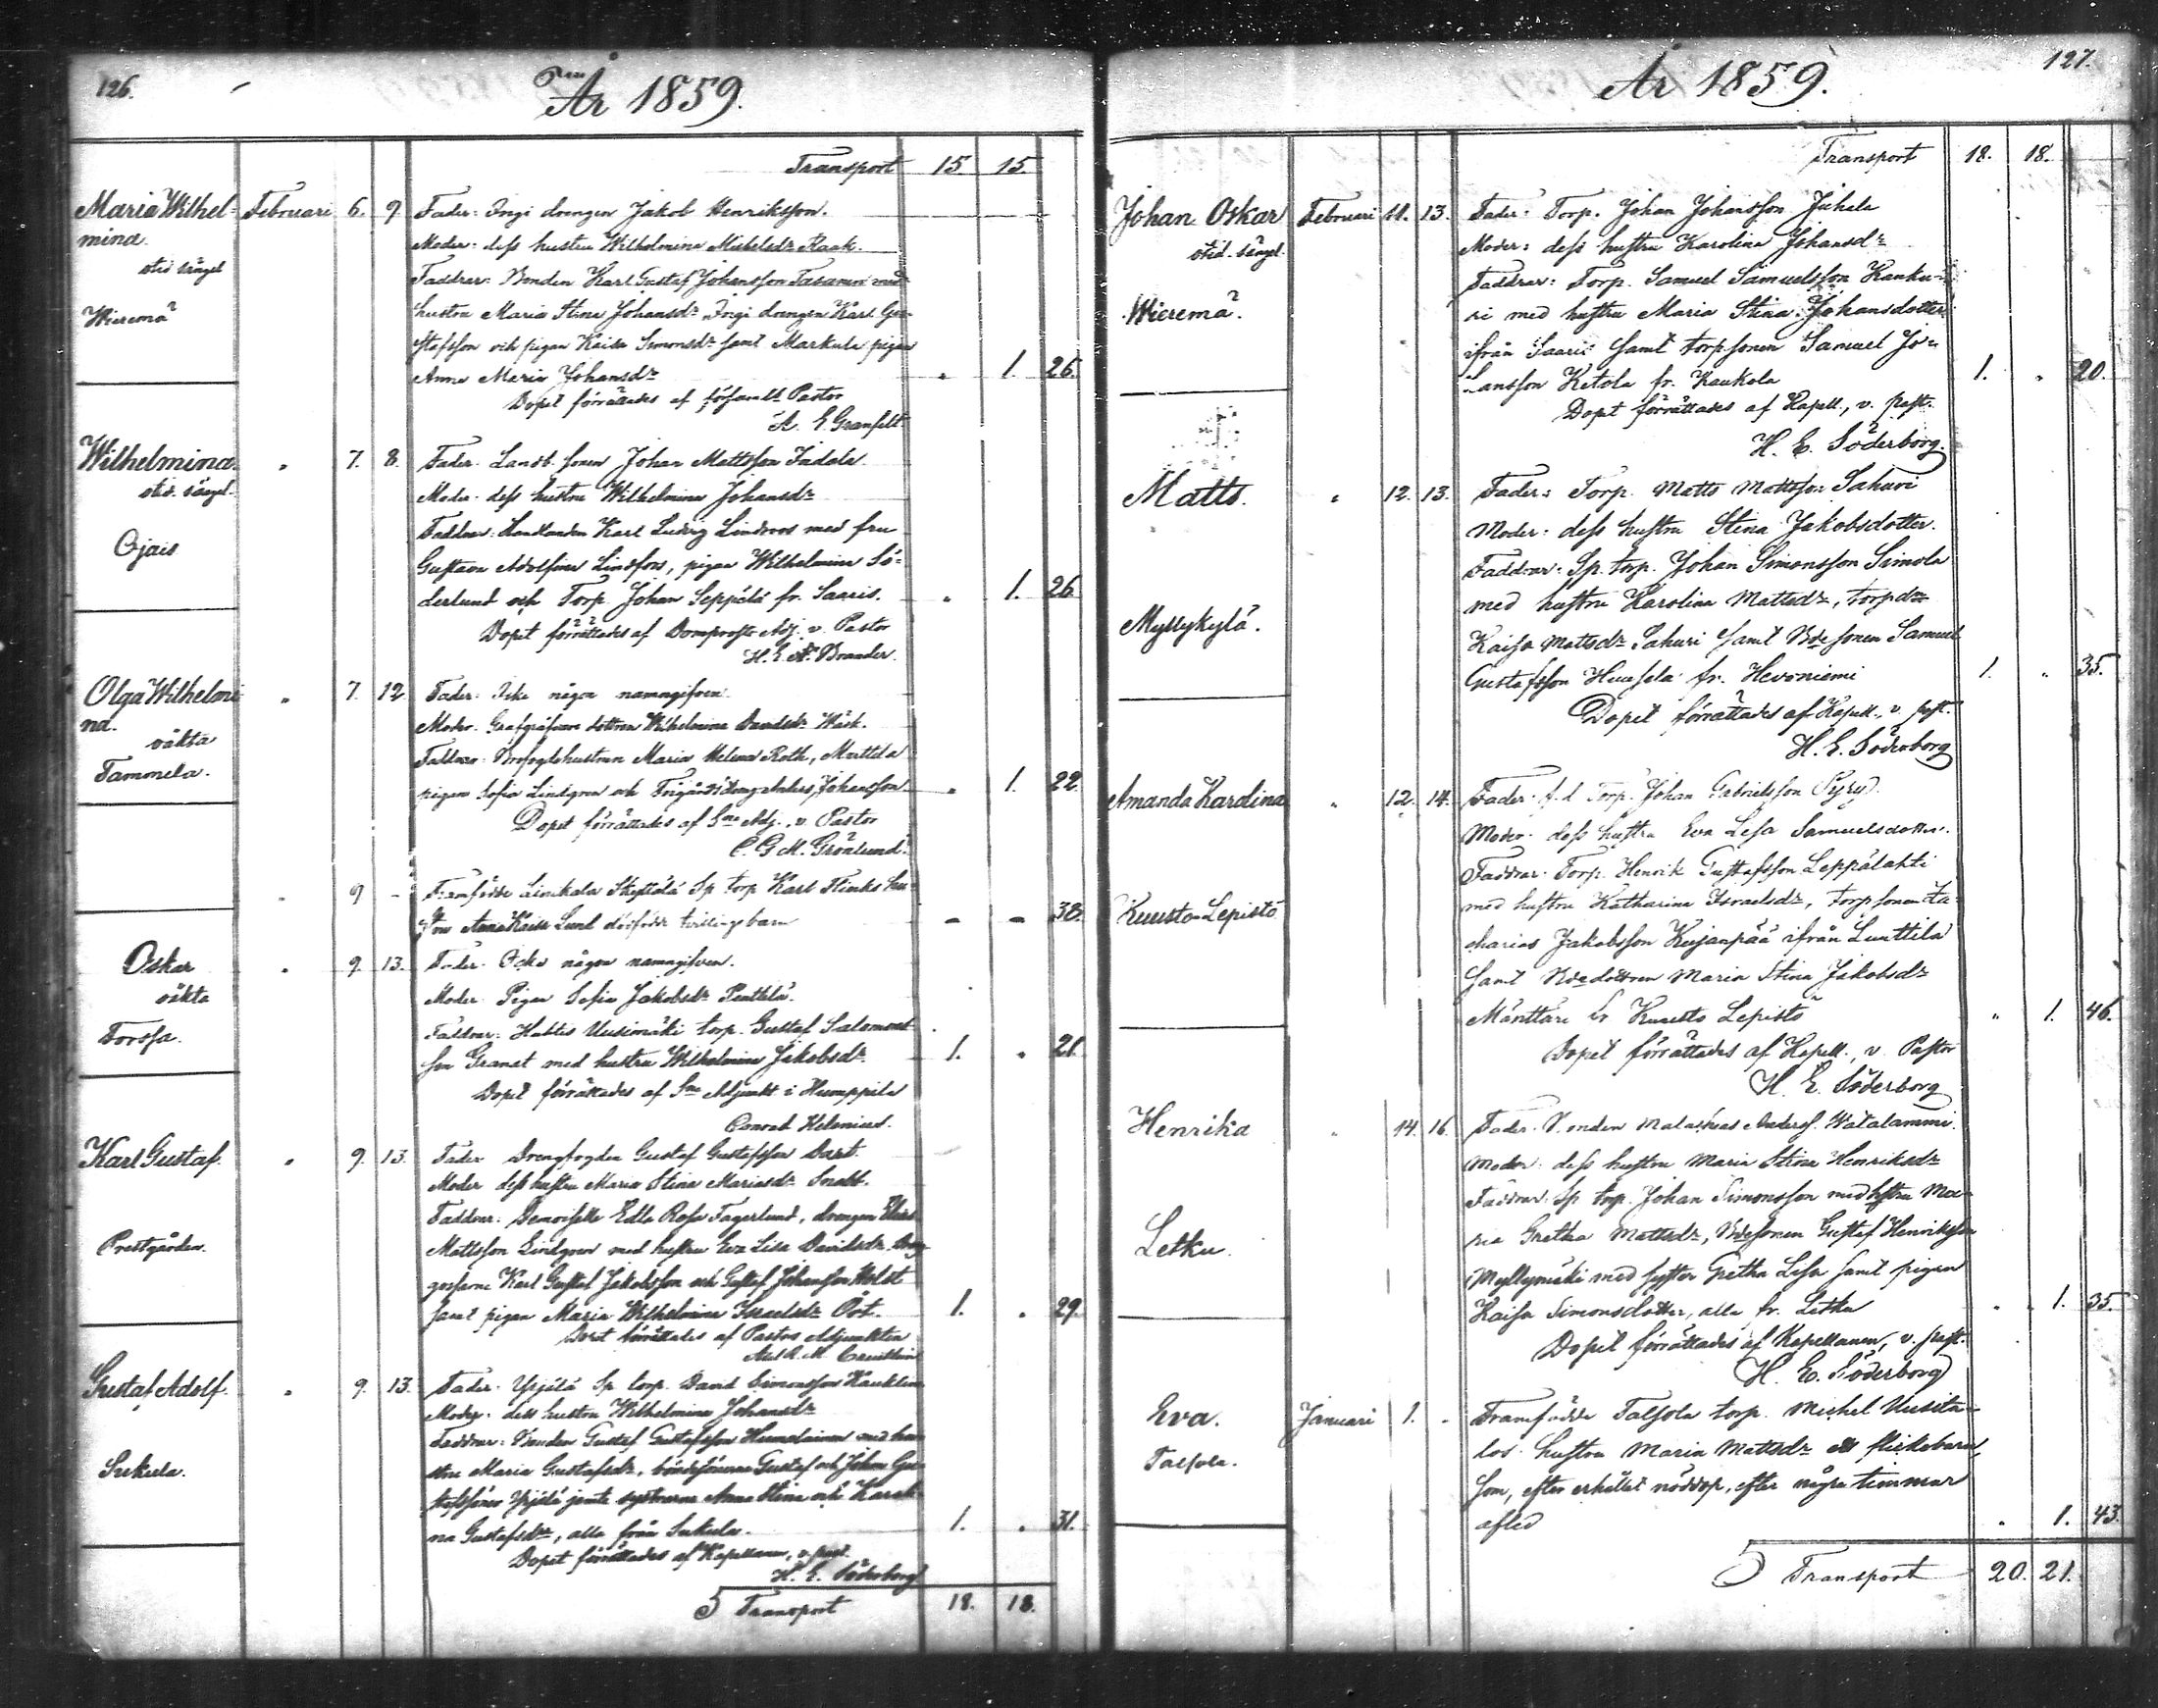 126.
År 1859.
Transport 15. 15.
Maria Wilhel- Februari 6. 9. Fader: Ingi drengen Jakob Henriksson.
mina. Moder: dess hustru Wilhelmina Michelsdr Raak.
Faddrar: Bonden Karl Gustaf Johansson
Wieremä hustru Maria Stina Johansdr Ingi drengen Karl Gu-
stafsson och pigan Kaisa Simonsdr samt Markula pigan
Anna Maria Johansdr " 1. 26.
Dopet förrättades af Pastor
A. E. Granfelt.
Wilhelmina " 7. 8. Fader: Landb. sonen Johan Mattsson
Moder: dess hustru Wilhelmina Johansdr
Ojais Faddrar: Handlanden Karl Ludvig Lindroos med fru
Gustava Adolfina Lindfors, pigan Wilhelmina Sö-
derlund och Torp. Johan Seppälä fr. Saaris. " 1. 26.
Dopet förrättades af Domprosts Adj. v. Pastor
H. E. A. Brander.
Olga Wilhelmi " 7. 12. Fader: Icke någon namngifven.
na. Moder: dottren Wilhelmina Davidsdr
oäkta Faddrar: Maria Helena Roth, Mattila
Tammela. pigan Sofia Lindgren och Johansson " 1. 22.
Dopet förrättades af Sne Adj., v. Pastor
C. G. M. Grönlund.
" 9 - Framfödde Linikala Skyttälä Sp torp Karl Flinks hu-
stru Anna Kaisa Lund dödfödt tvillingsbarn - - 38.
Oskar " 9. 13. Fader: Icke någon namngifven.
oäkta Moder: Pigan Sofia Jakobsdr Penttilä.
Forssa. Faddrar: Uusimäki torp. Gustaf Salomons-
son Granat med hustru Wilhelmina Jakobsdr 1. " 21.
Dopet förrättades af Sne Adjunkt i Humppila
Conrad Helenius.
Karl Gustaf. " 9. 13. Fader Drengfogden Gustaf Gustafsson
Moder dess hustru Maria Stina Mariasdr Snabb.
Prestgården. Faddrar: Demoiselle Edla Rosa Fagerlund, drengen
Mattsson Lindgren med hustru Eva Lisa Davidsdr
gossarne Karl Gustaf Jakobsson och Gustaf Johansson Holst
samt pigan Maria Wilhelmina Israelsdr Öst. 1. " 29.
Dopet förrättades af Pastors Adjunkten
Gustaf Adolf. " 9. 13. Fader: Ypäjä Sp torp. David Simonsson
Moder: dess hustru Wilhelmina Johansdr
Faddrar: Bonden Gustaf Gustafsson Humalainen med hu-
Sukula. stru Maria Gustafsdr, bondesönerne Gustaf och Johan Gu-
jemte systrarne Anna Stina och Karoli-
na Gustafsdr, alla från Sukula. 1. " 31.
Dopet förrättades af Kapellanen, v. past.
H. E. Söderborg
5 Transport 18. 18.
127.
År 1859.
Transport 18. 18.
Johan Oskar Februari 11. 13. Fader: Torp. Johan Johansson
Moder: dess hustru Karolina Johansdr
Faddrar: Torp. Samuel Samuelsson Kanku-
Wieremä. ri med hustru Maria Stina Johansdotter
ifrån Saaris samt torpsonen Samuel Jo-
hansson Ketola fr. Kaukola 1. " 20.
Dopet förrättades af Kapell., v. past.
H. E. Söderborg.
Matts. " 12. 13. Fader: Torp. Matts Mattsson Sahuri
Moder: dess hustru Stina Jakobsdotter.
Faddrar: Sp. torp. Johan Simonsson Simola
Myllykylä. med hustru Karolina Mattsdr, torpdr
Kaisa Mattsdr Sahuri samt Bdesonen Samuel
Gustafsson fr. Hevoniemi 1. " 35.
Dopet förrättades af Kapell., v. past.
H. E. Söderborg
Amanda Karolina " 12. 14. Fader: f.d. Torp. Johan Gabrielsson
Moder: dess hustru Eva Lisa Samuelsdotter.
Faddrar: Torp. Henrik Gustafsson Leppälahti
Kuusto Lepistö med hustru Katharina Israelsdr, torpsonen Za-
charias Jakobsson Kujanpää ifrån Lunttila
samt Bdedottren Maria Stina Jakobsdr
Mänttäri fr Kuusto Lepistö " 1. 46.
Dopet förrättades af Kapell., v. Pastor
H. E. Söderborg
Henrika " 14. 16. Fader: Bonden Malachias Andersson
Moder: dess hustru Maria Stina Henriksdr
Faddrar: Sp torp. Johan Simonsson med hustru Ma-
Letku. ria Gretha Mattsdr, Bdesonen Gustaf Henriksson
Myllymäki med syster Gretha Lisa samt pigan
Kaisa Simonsdotter, alla fr. Letku " 1. 35.
Dopet förrättades af Kapellanen, v. past.
H. E. Söderborg
Eva. Januari 1. - Framfödde Talsola torp. Michel Uusita-
Talsola. los hustru Maria Mattsdr ett flickebarn,
som, efter erhållet nöddop, efter några timmar
afled " 1. 43.
5 Transport 20. 21.